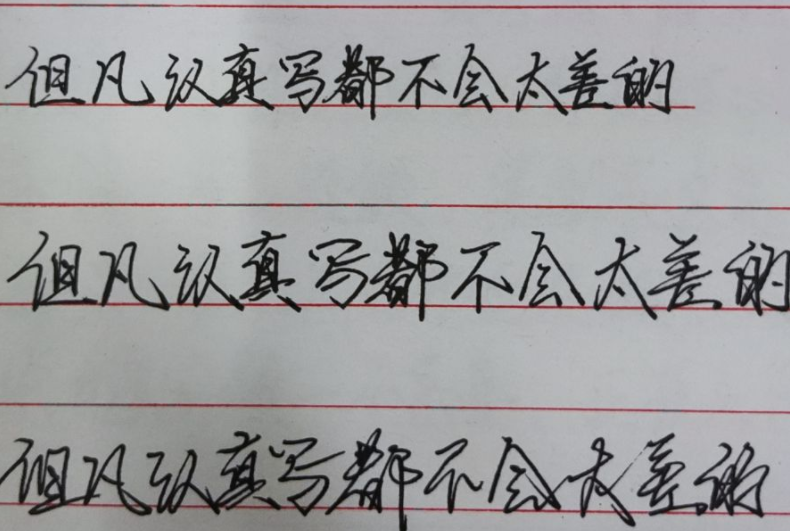 但凡认真写都不会太差的
但凡认真写都不会太差的
但凡认真写都不会太差的